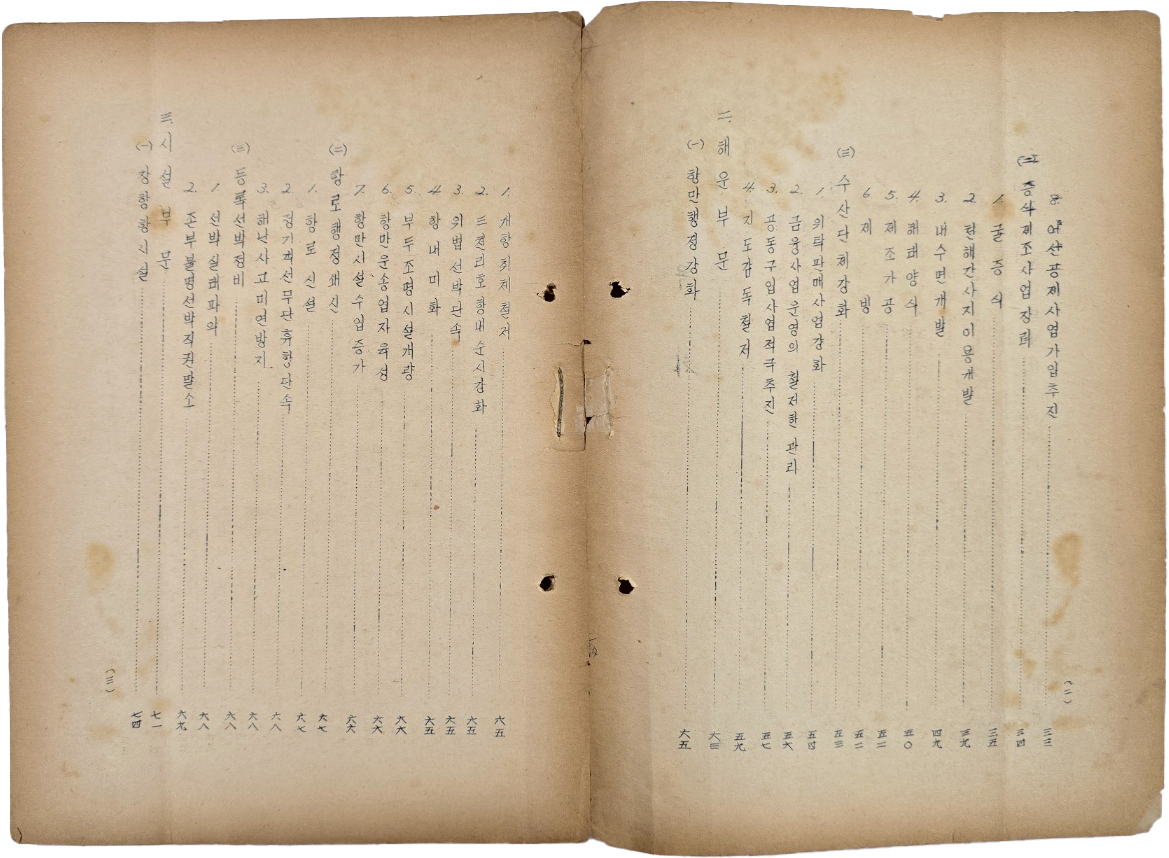 8. 어선공제사업가입추진 三三
(二) 증식제조사업장려 三四
1. 굴증식 三五
2. 천해간사지이용개발 三九
3. 내수면개발 四九
4. 해태양식 五〇
5. 제조가공 五二
6. 제빙 五二
(三) 수산단체강화 五三
1. 위탁판매사업강화 五四
2. 금융사업운영의 철저한 관리 五六
3. 공동구입사업적극추진 五七
4. 지도감독철저 五九
二. 해운부문 六三
(一) 항만행정강화 六五
(二)
1. 개항취체철저 六五
2. 三천리호항내순시강화 六五
3. 위법선박단속 六五
4. 항내미화 六五
5. 부두조명시설개량 六六
6. 항만운송업자육성 六六
7. 항만시설수입증가 六六
(二) 항로행정쇄신 六七
1. 항로신설 六七
2. 정기여객선무단휴항단속 六八
3. 해난사고미연방지 六八
(三) 등록선박정비 六八
1. 선박실태파악 六八
2. 존부불명선박직권말소 六九
三. 시설부문 七一
(一) 장항항시설 七四
(三)